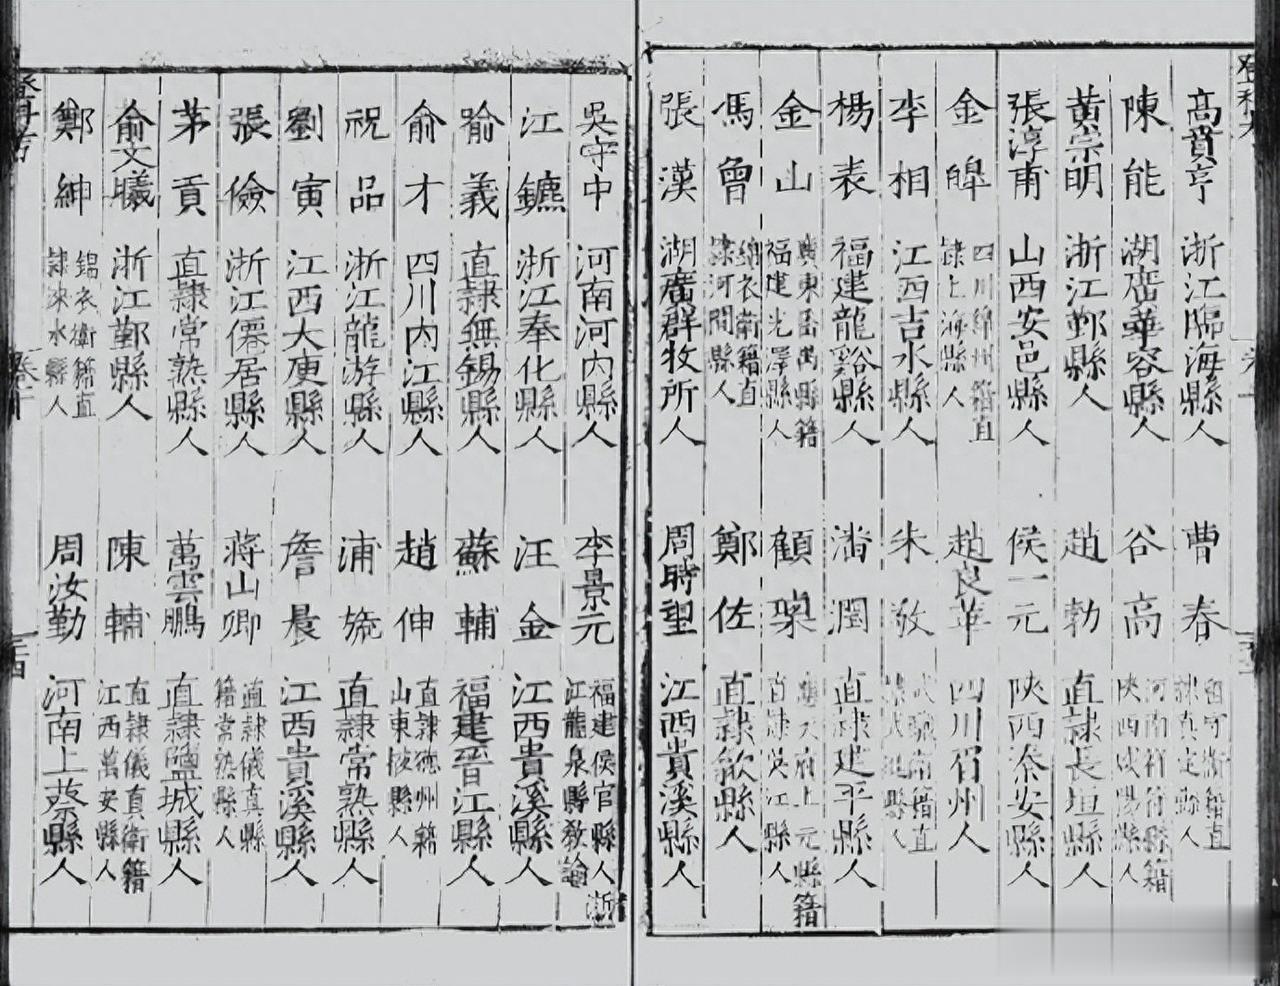 高貫亨 浙江臨海縣人
曹春 直隸真定縣人
陳能 湖廣華容縣人
谷高 河南祥符縣籍陝西咸陽縣人
黃宗明 浙江鄞縣人
趙勃 直隸長垣縣人
張淳甫 山西安邑縣人
侯一元 陝西秦安縣人
金皥 四川綿州籍直隸上海縣人
趙良華 四川眉州人
李相 江西吉水縣人
朱敬
楊表 福建龍谿縣人
潘潤 直隸建平縣人
金山 廣東番禺縣籍福建光澤縣人
顧槩 應天府上元縣籍直隸吳江縣人
馮曾 錦衣衛籍直隸河間縣人
鄭佐 直隸歙縣人
張漢 湖廣群牧所人
周時望 江西貴溪縣人
吳守中 河南河內縣人
李景元 福建侯官縣人浙江龍泉縣教諭
江鑣 浙江奉化縣人
汪金 江西貴溪縣人
喻義 直隸無錫縣人
蘇輔 福建晉江縣人
俞才 四川內江縣人
趙伸 直隸德州籍山東掖縣人
祝品 浙江龍游縣人
浦㫌 直隸常熟縣人
劉寅 江西大庾縣人
詹晨 江西貴溪縣人
張儉 浙江僊居縣人
蔣山卿 直隸儀真縣籍常熟縣人
茅貢 直隸常熟縣人
萬雲鵬 直隸鹽城縣人
俞文曦 浙江鄞縣人
陳輔 直隸儀真衛籍江西萬安縣人
鄭紳 錦衣衛籍直隸淶水縣人
周汝勤 河南上蔡縣人